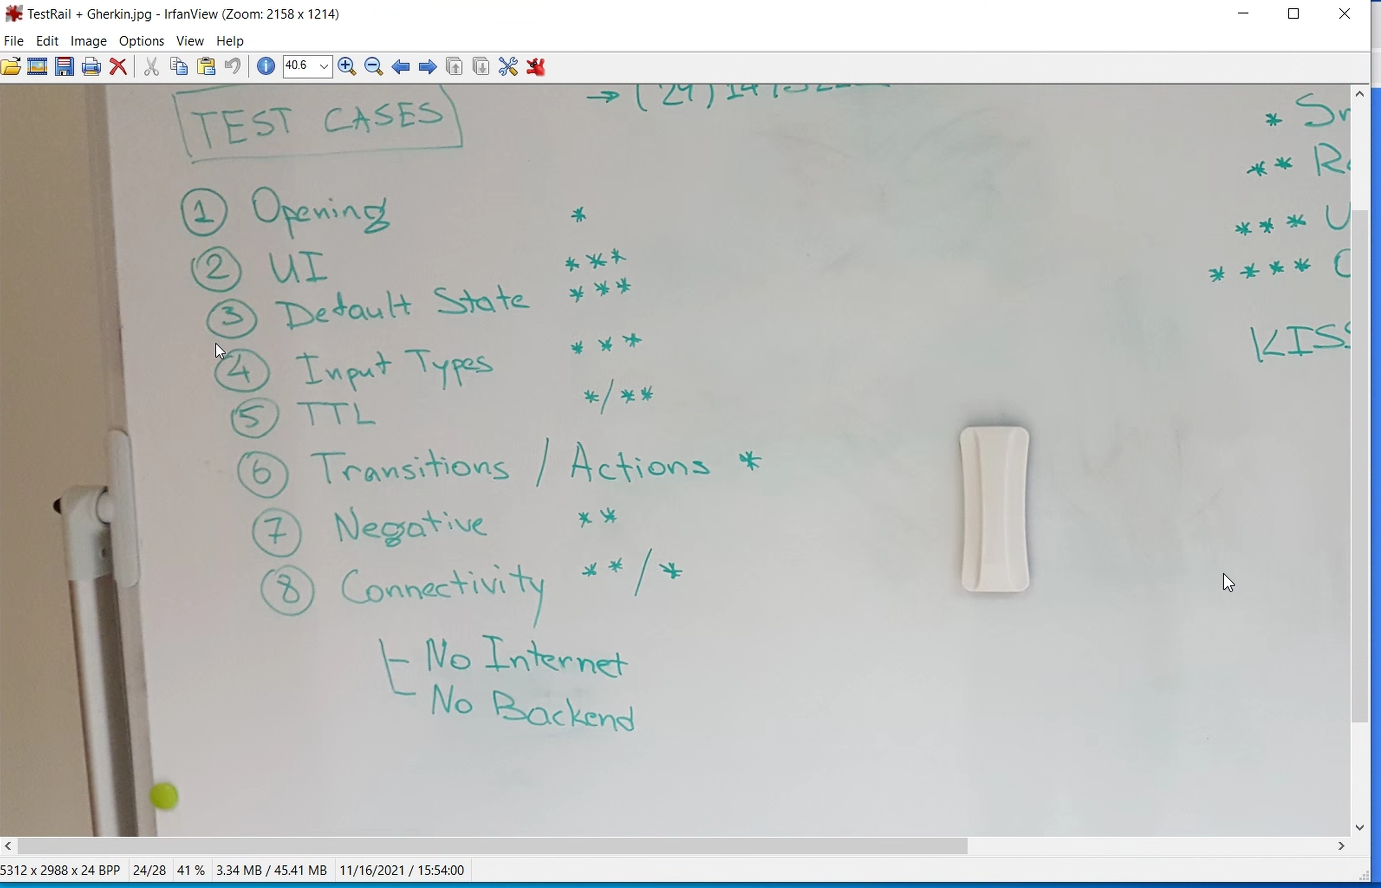 TestRail + Gherkin.jpg - IrfanView (Zoom: 2158 x 1214)
File Edit Image Options View Help
40.6
TEST CASES
1 Opening *
2 UI ***
3 Default State ***
4 Input Types ***
5 TTL */**
6 Transitions / Actions *
7 Negative **
8 Connectivity **/*
No Internet
No Backend
*
**
*** U
****
KISS
5312 x 2988 x 24 BPP 24/28 41 % 3.34 MB / 45.41 MB 11/16/2021 / 15:54:00